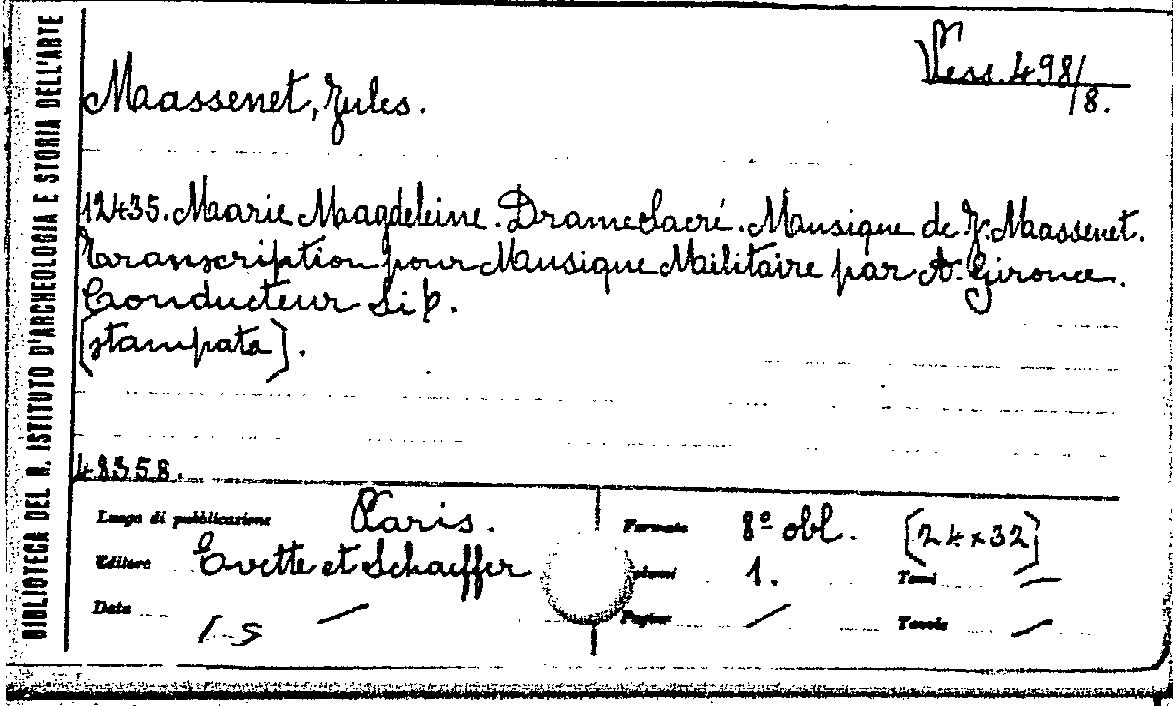 BIBLIOTECA DEL R. ISTITUTO D'ARCHEOLOGIA E STORIA DELL'ARTE
Vess. 498/8.
Massenet, Jules.
12435. Marie Magdeleine. Drame Sacré. Musique de J. Massenet.
Transcription pour Musique Militaire par A. Gironce.
Conducteur Si b.
[stampata].
48358.
Luogo di pubblicazione Paris. Formato 8º obl. [24x32]
Editore Evette et Schaeffer 1. Tomi —
Data — Pagine — Tavole —